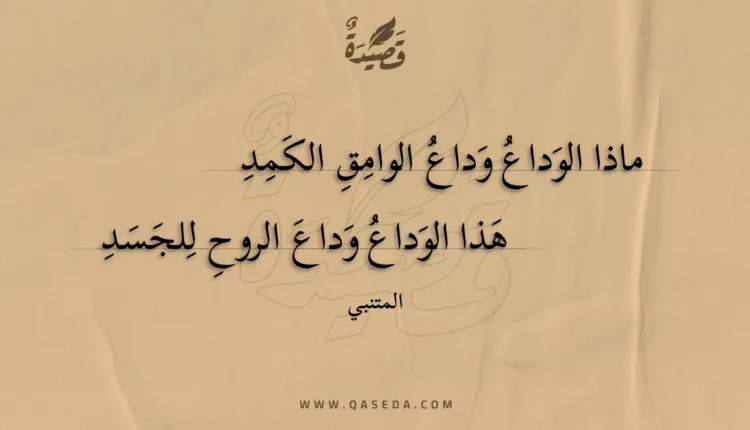 قَصِيْدَةٌ
ماذا الوَداعُ وَداعُ الوامِقِ الكَمِدِ
هَذا الوَداعُ وَداعَ الروحِ لِلجَسَدِ
المتنبي
WWW.QASEDA.COM